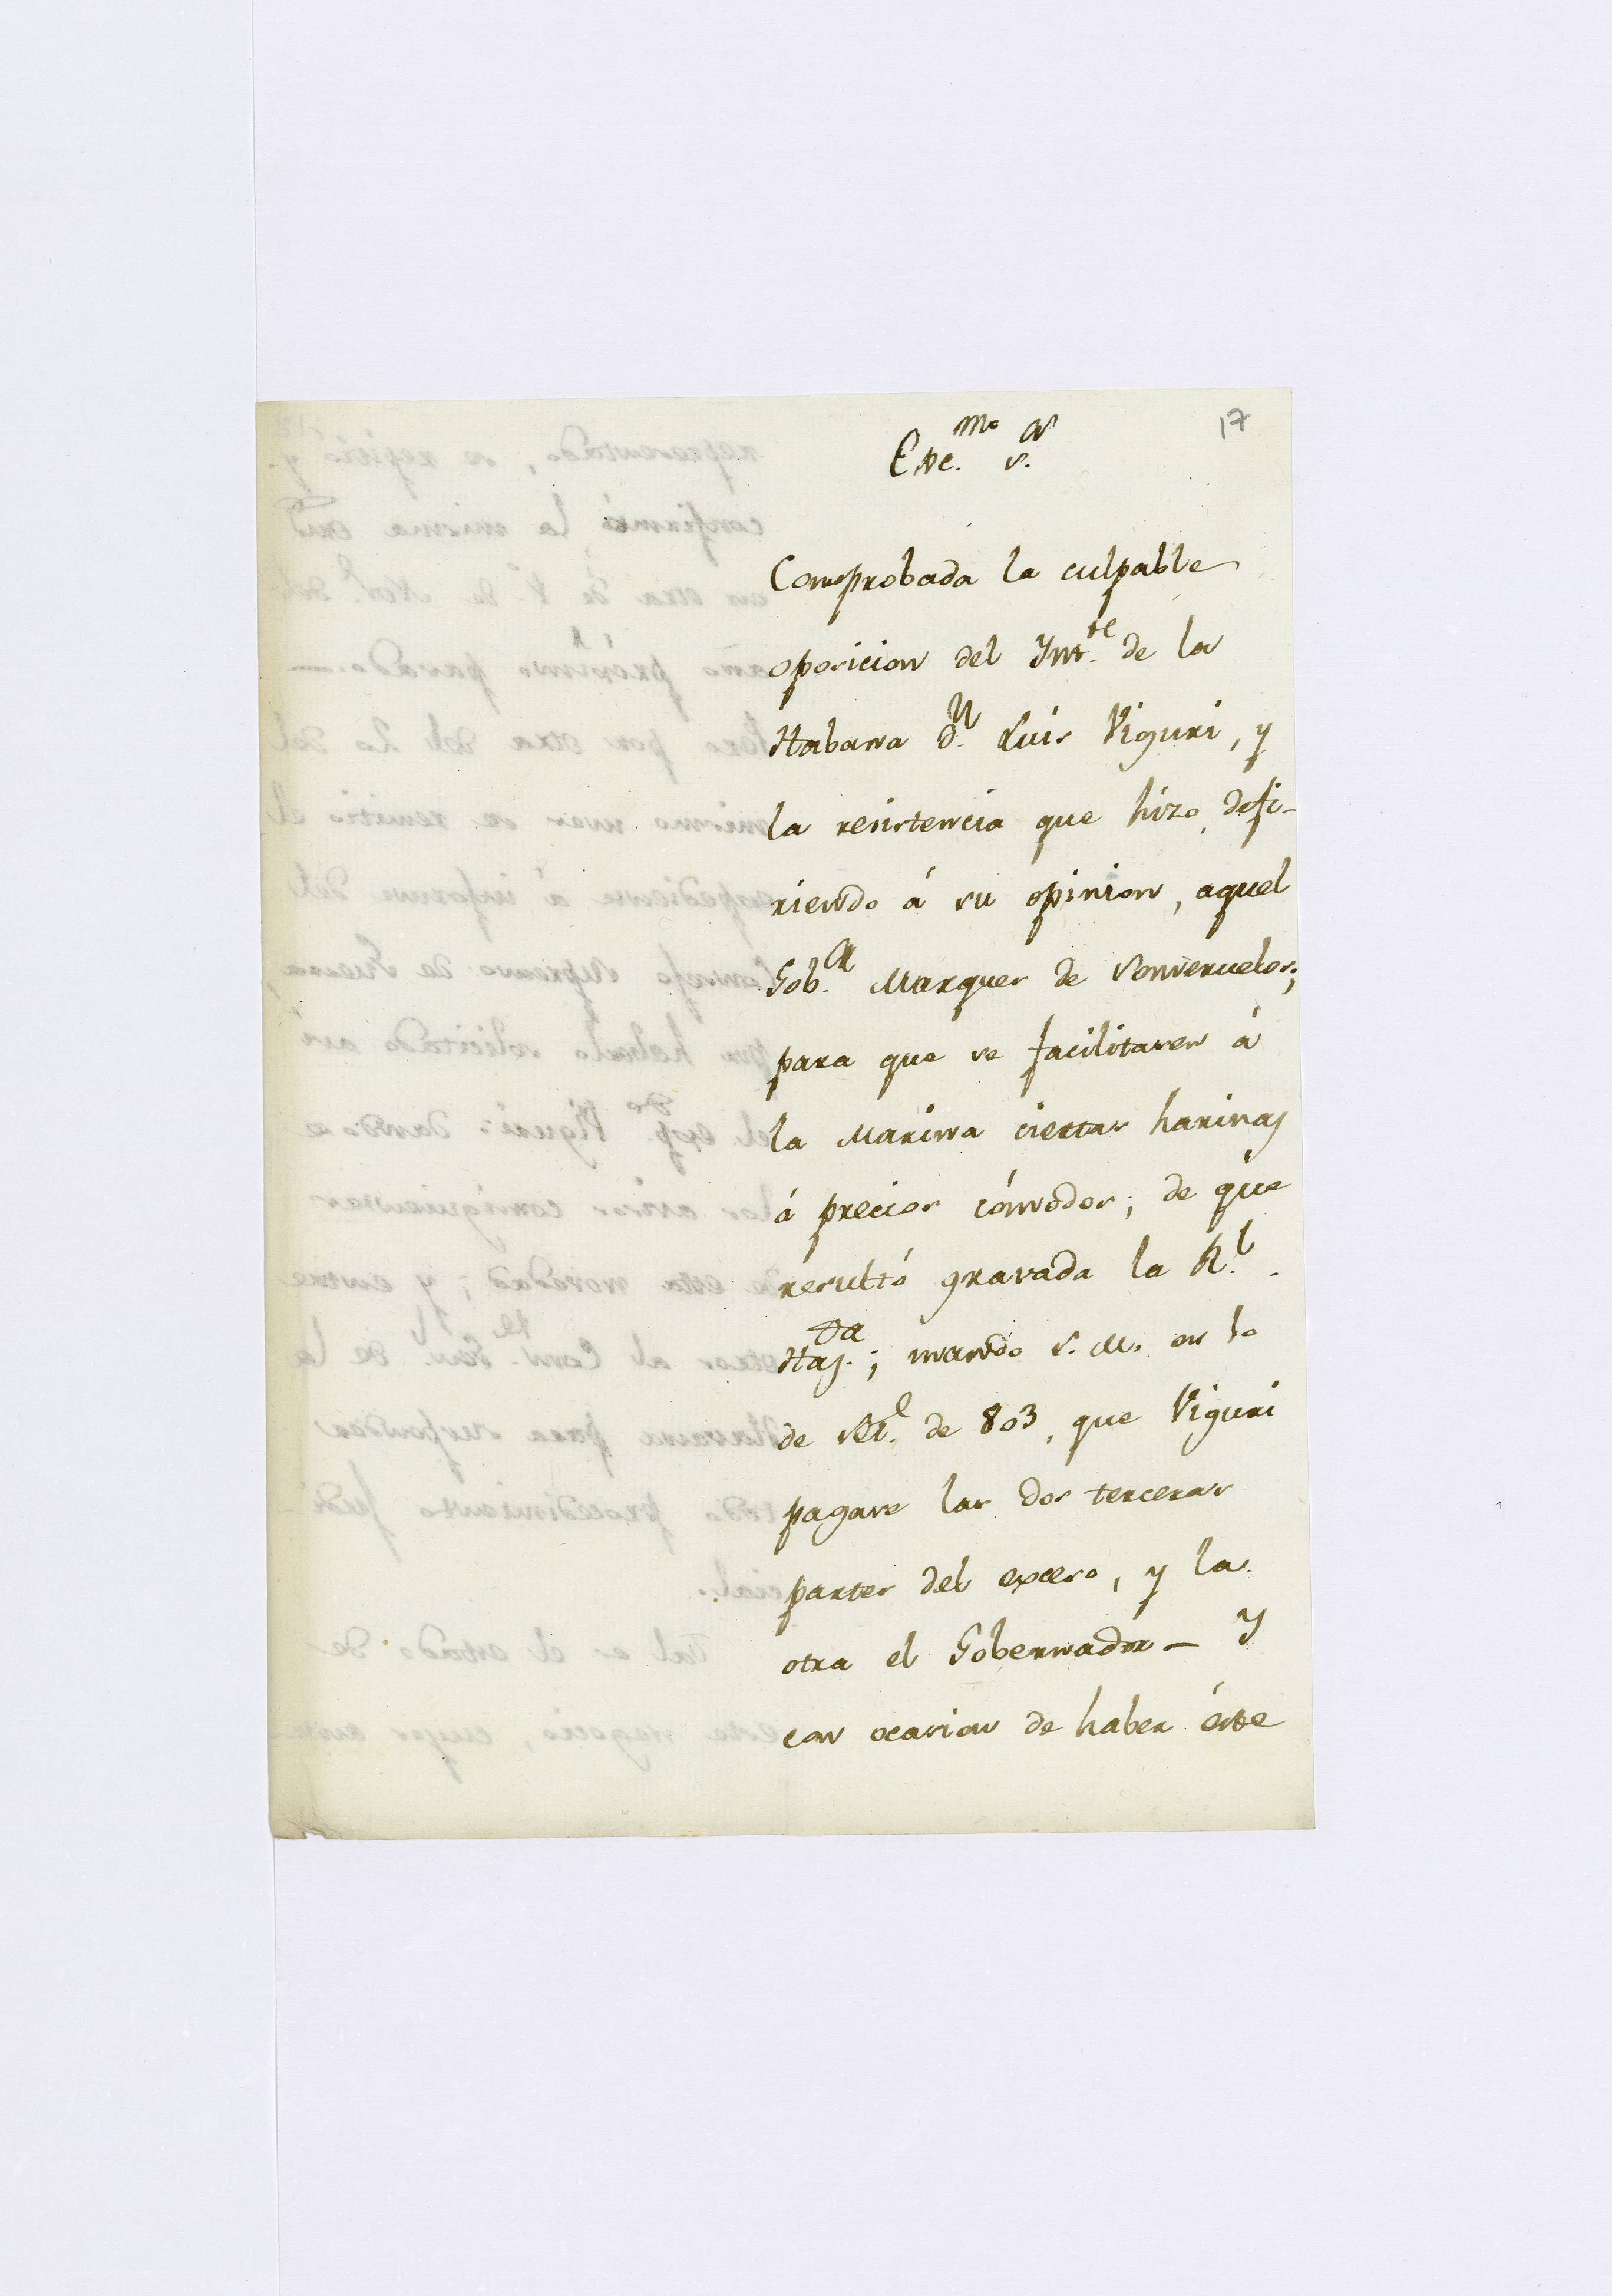 17
Exc.mo S.or
Comprobada la culpable
oposicion del Int.te de la
Habana D.n Luis Viguri, y
la resistencia que hizo, defi-
riendo á su opinion, aquel
Gob.or Marques de Someruelos;
para que se facilitasen á
la Marina ciertas harinas
á precios cómodos; de que
resultó gravada la R.l
Haz.da; mando S. M. en 1o
de de 803, que Viguri
pagase las dos terceras
partes del exceso, y la
otra el Gobernador — Y
con ocasion de haber éste